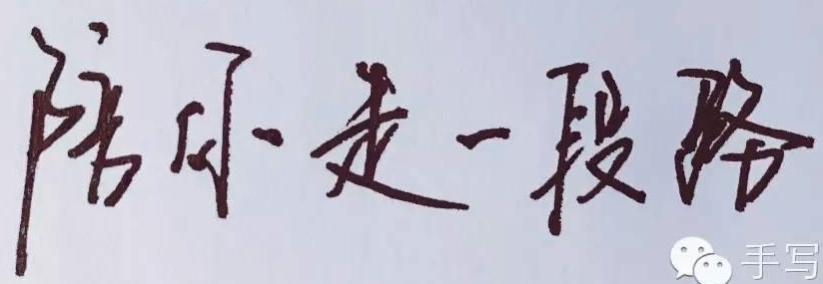 陪你走一段路
手写